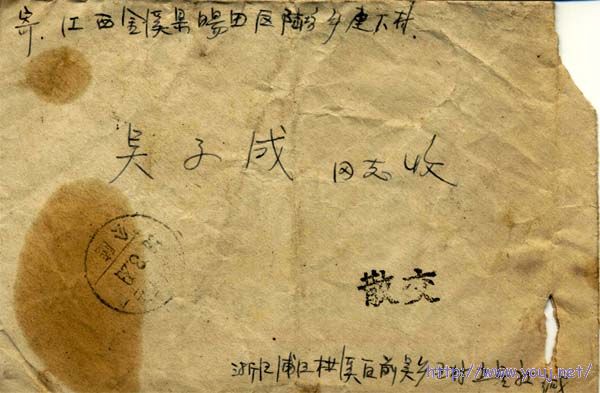 寄.江西金溪县暘田区陆坊乡建下村
吴子成 同志收
今溪
8.23
散交
浙江浦江杭溪区前吴乡
http://www.youj.net/
缄